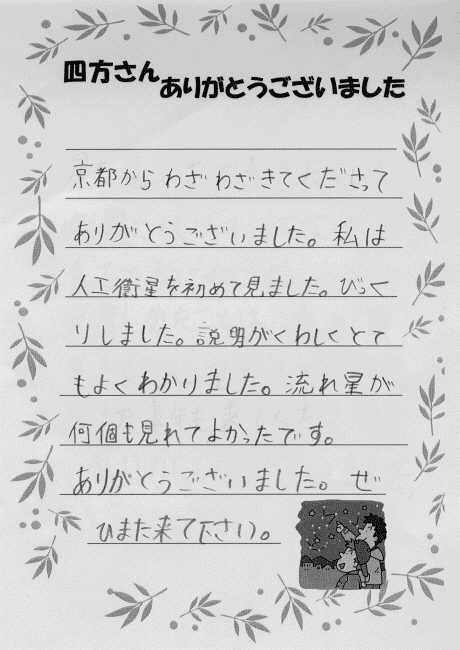 四方さん
ありがとうございました
京都からわざわざきてくださって
ありがとうございました。私は
人工衛星を初めて見ました。びっく
りしました。説明がくわしくとて
もよくわかりました。流れ星が
何個も見れてよかったです。
ありがとうございました。ぜ
ひまた来て下さい。